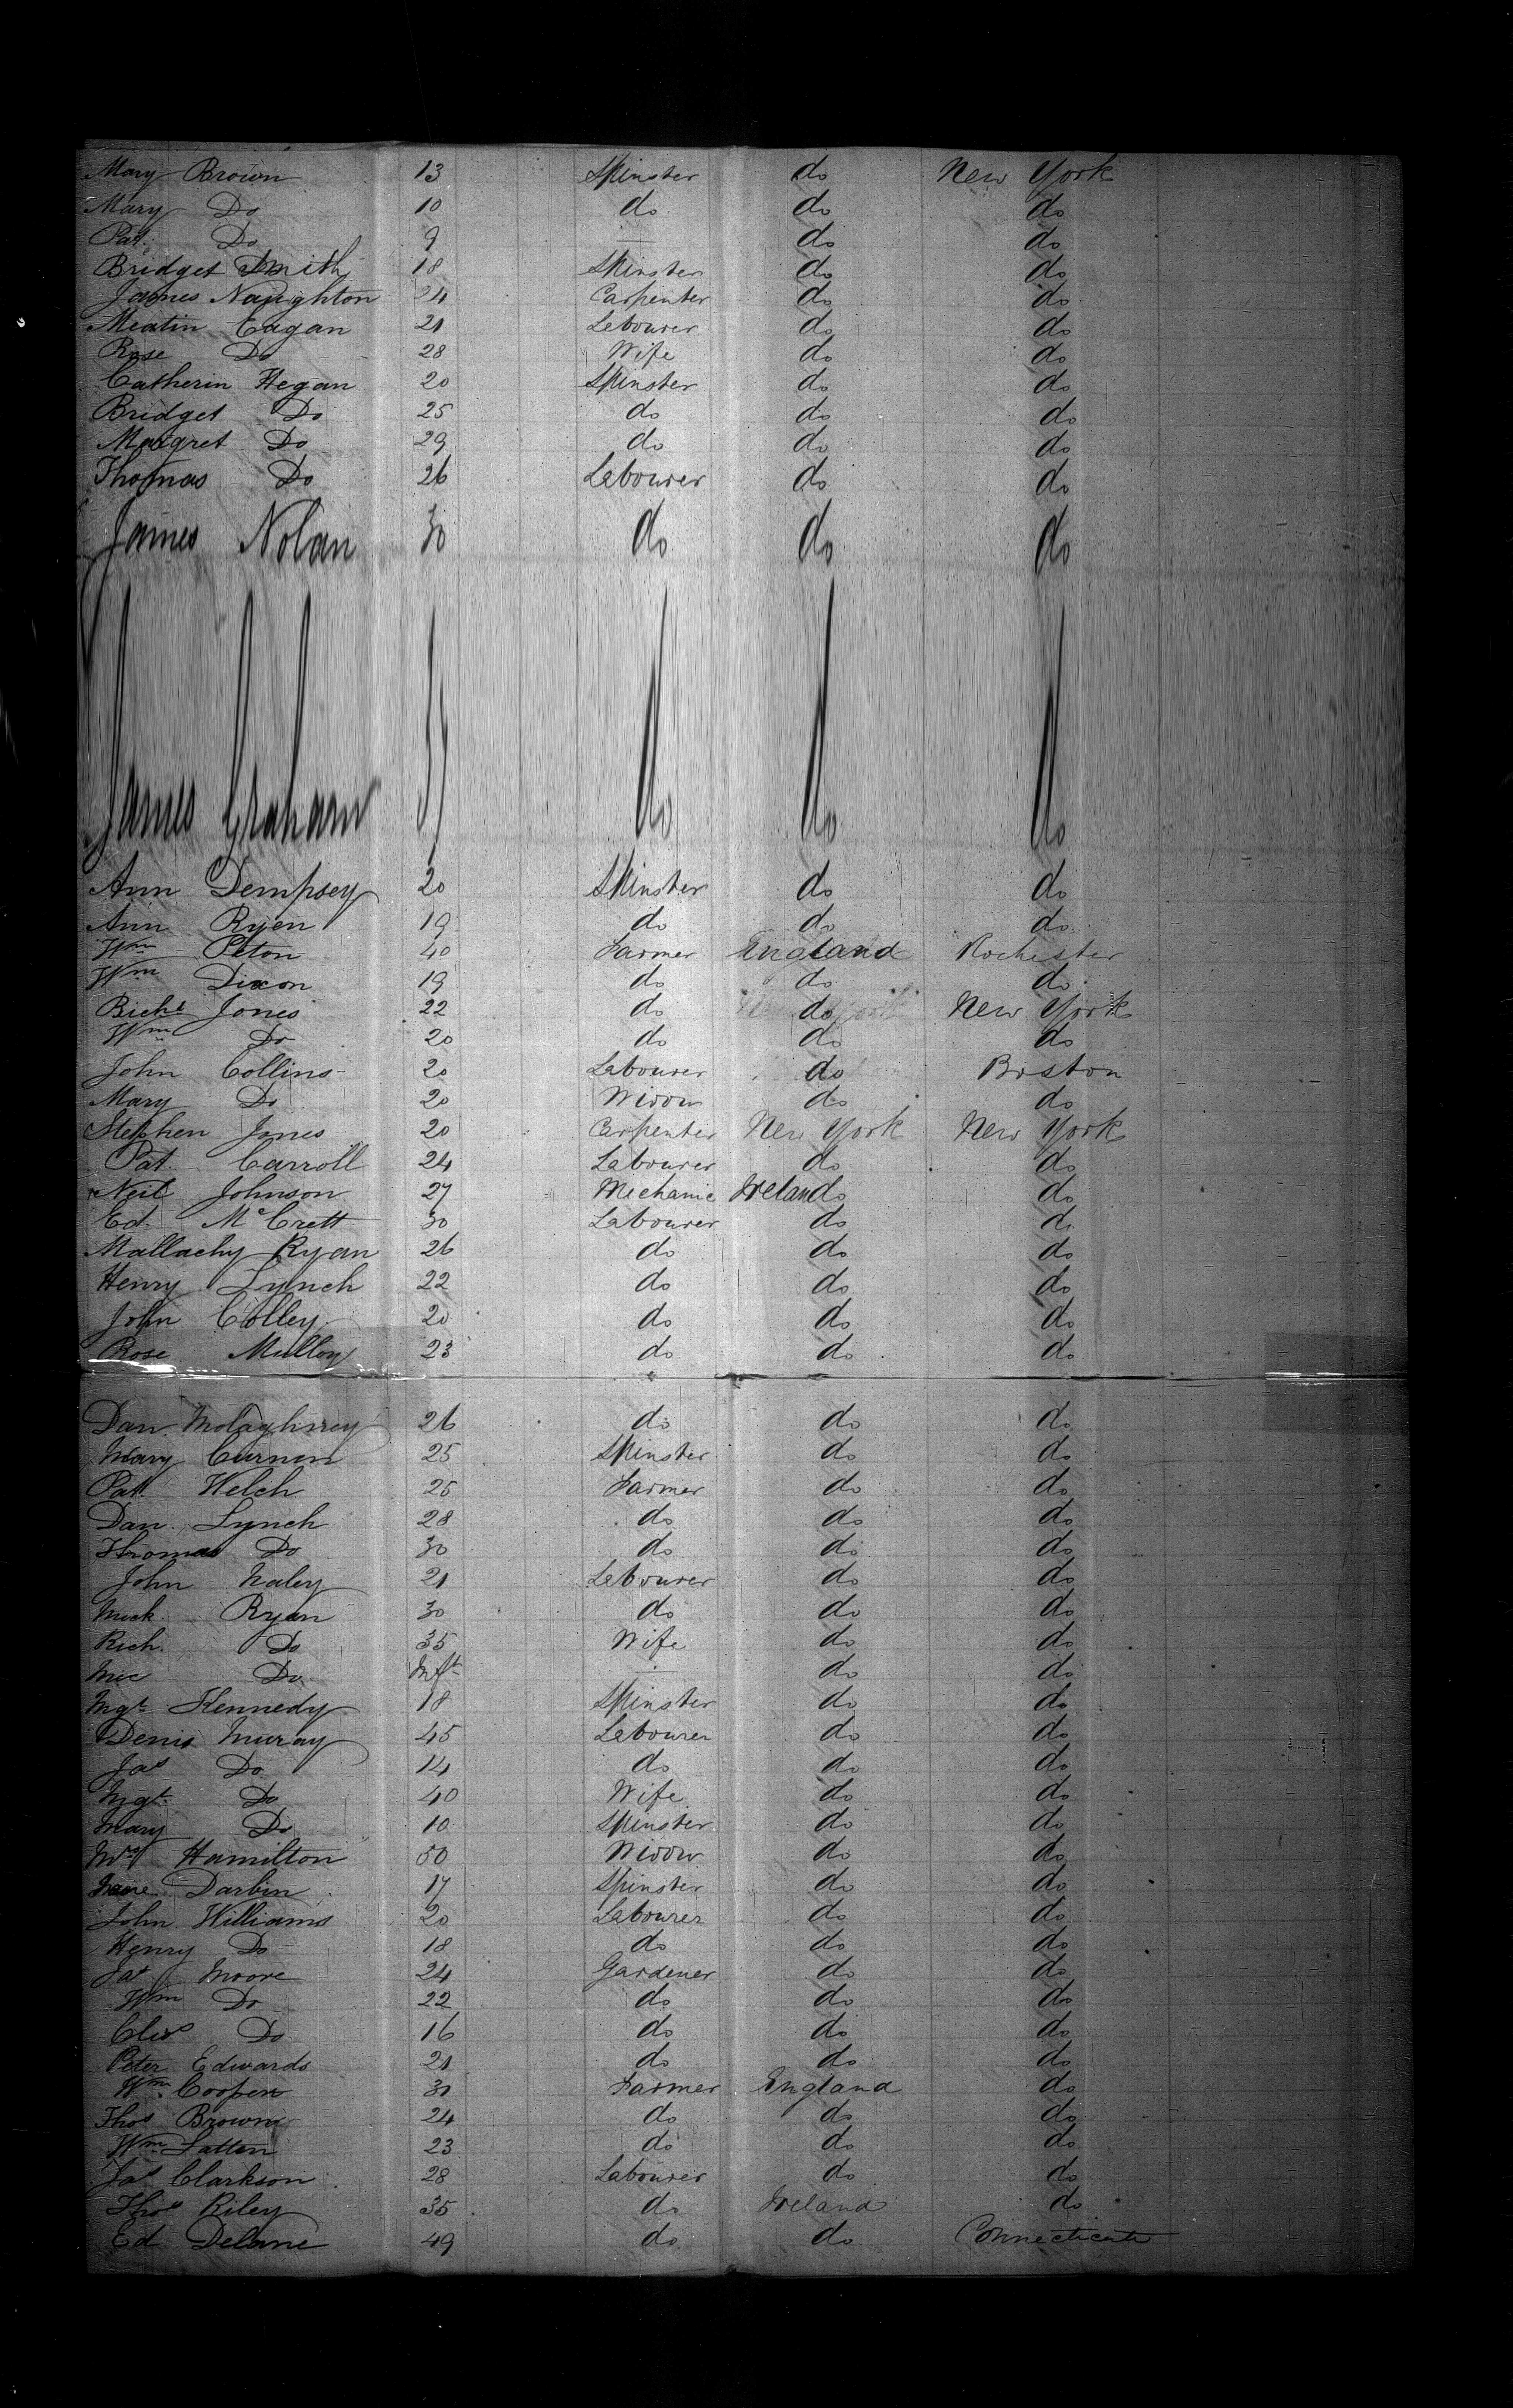 Mary Brown 13 Spinster do New York
Mary Do 10 do do do
Pat. Do 9 — do do
Bridget Smith 18 Spinster do do
James Naughton 24 Carpenter do do
Meatin Eagan 21 Labourer do do
Rose Do 28 Wife do do
Catherin Hegan 20 Spinster do do
Bridget Do 25 do do do
Margret Do 29 do do do
Thomas Do 26 Labourer do do
James Nolan 30 do do do
James Graham do do do
Ann Dempsey 20 Spinster do do
Ann Ryen 19 do do do
Wm Peton 40 Farmer England Rochester
Wm Dixon 19 do do do
Richd Jones 22 do do New York
Wm Do 20 do do do
John Collins 20 Labourer do Boston
Mary Do 20 Widow do do
Stephen Jones 20 Carpenter New York New York
Pat. Carroll 24 Labourer do do
Neil Johnson 27 Mechanic Ireland do
Ed. McCrett 30 Labourer do do
Mallachy Ryan 26 do do do
Henry Lynch 22 do do do
John Colley 20 do do do
Rose Mulloy 23 do do do
Dan 26 do do do
Mary Curnin 25 Spinster do do
Pat. Welch 25 Farmer do do
Dan. Lynch 28 do do do
Thomas Do 30 do do do
John Naley 21 Labourer do do
Mick. Ryan 30 do do do
Rich. Do 35 Wife do do
Mic Do Inft — do do
Mgt. Kennedy 18 Spinster do do
Denis Muray 45 Labourer do do
Jas Do 14 do do do
Mgt. Do 40 Wife do do
Mary Do 10 Spinster do do
Mrs Hamilton 50 Widow do do
Darbin 17 Spinster do do
John Williams 20 Labourer do do
Henry Do 18 do do do
Jas Moore 24 Gardener do do
Wm Do 22 do do do
Do 16 do do do
Peter Edwards 21 do do do
Wm. Cooper 31 Farmer England do
Thos Brown 24 do do do
Wm Latten 23 do do do
Jas Clarkson 28 Labourer do do
Thos Riley 35 do Ireland do
Ed. Delane 49 do do Connecticute